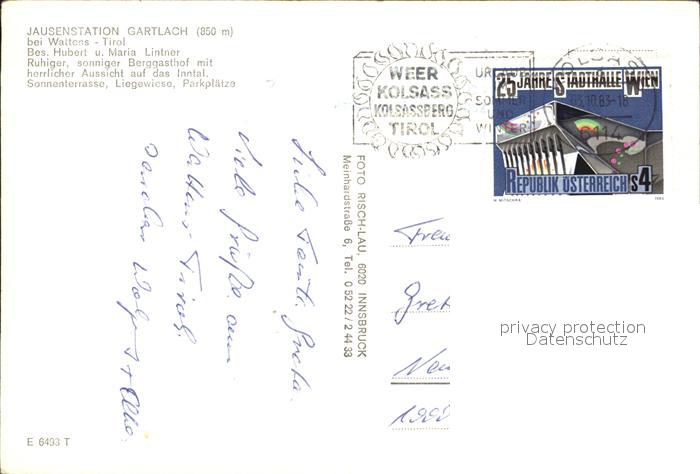 JAUSENSTATION GARTLACH (850 m)
bei Wattens - Tirol
Bes. Hubert u. Maria Lintner
Ruhiger, sonniger Berggasthof mit
herrlicher Aussicht auf das Inntal.
Sonnenterrasse, Liegewiese, Parkplätze
WEER
KOLSASS
KOLSASSBERG
TIROL
URLAUB
SOMMER
UND
WINTER
KOLSASS
03.10.83-18
6114
25 JAHRE STADTHALLE WIEN
REPUBLIK ÖSTERREICH S4
H. MITSCHKA 1983
Liebe Tante Greta.
Viele Grüße aus
Wattens Tirol.
FOTO RISCH-LAU, 6020 INNSBRUCK
Meinhardstraße 6, Tel. 0 52 22 / 2 44 33
Gret
1000
privacy protection
Datenschutz
E 6493 T